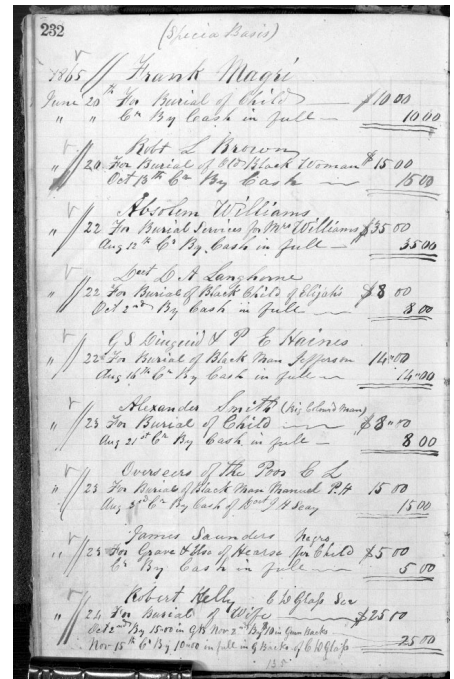 232
(Specia Basis)
1865 // Frank Magri
June 20th For Burial of Child $10 00
" " Cr By Cash in full 10 00
Robt L Brown
" 20 For Burial of Old Black Woman $15 00
Oct 13th Cr By Cash 15 00
Absolem Williams
" 22 For Burial Services for Mrs Williams $35 00
Aug 12th Cr By Cash in full 35 00
Doct D. A Langhorne
" 22 For Burial of Black Child of Elijahs $8 00
Oct 2nd By Cash in full 8 00
G S Diuguid & P E Haines
" 22 For Burial of Black Man Jefferson 14 00
Aug 16th Cr By Cash in full 14 00
Alexander Smith (Colored Man)
" 23 For Burial of Child $8 00
Aug 21st Cr By Cash in full 8 00
Overseers of the Poor C L
" 23 For Burial of Black Man Manuel P. H 15 00
Aug Cr By Cash of Doct J H Seay 15 00
James Saunders Negro
" 23 For Grave & Use of Hearse for Child $5 00
Cr By Cash in full 5.00
Robert Kelly C W Glass Ser
" 24 For Burial of Wife $25 00
Oct 2nd By 15-00 in Nov 2nd By $10 in Hacks
Nov 15th Cr By 10-00 in full in G Backs of C W Glass 25 00